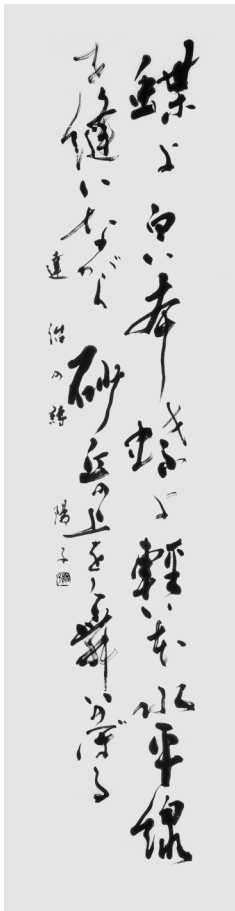 蝶よ白い本 蝶よ軽い本水平線
を縫いながら 砂丘の上を舞いのぼる
達治の詩 陽子